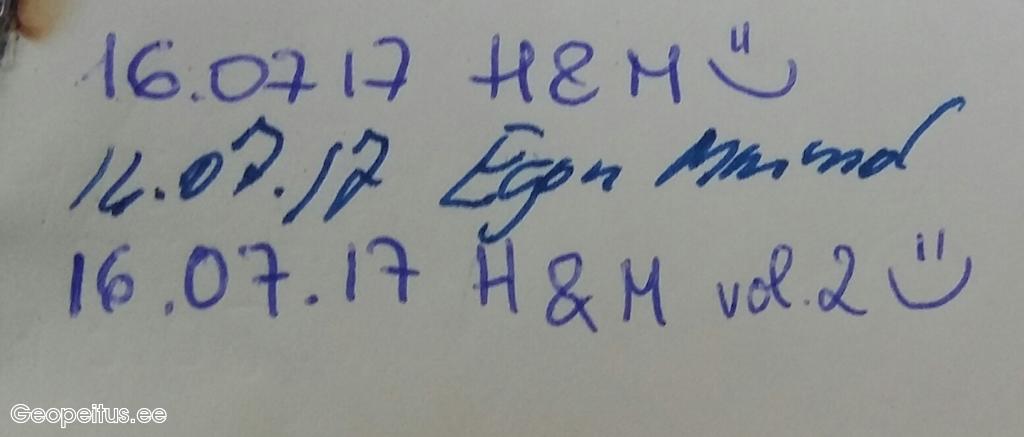 16.07 17 H & M
16.07.17 Egon
16.07.17 H & M vol. 2
Geopeitus.ee